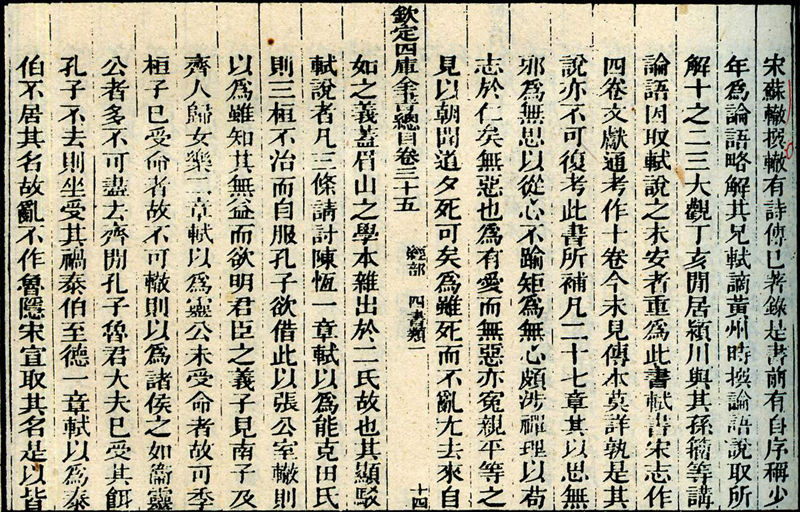 宋蘇轍撰轍有詩傳已著錄是書前有自序稱少
年為論語略解其兄軾謫黃州時撰論語說取所
解十之二三大觀丁亥閒居潁川與其孫籀等講
論語因取軾說之未安者重為此書軾書宋志作
四卷文獻通考作十卷今未見傳本莫詳孰是其
說亦不可復考此書所補凡二十七章其以思無
邪為無思以從心不踰矩為無心頗涉禪理以苟
志於仁矣無惡也為有愛而無惡亦冤親平等之
見以朝聞道夕死可矣為雖死而不亂尤去來自
欽定四庫全書總目卷三十五 經部 四書類一 十四
如之義蓋眉山之學本雜出於二氏故也其顯駁
軾說者凡三條請討陳恆一章軾以為能克田氏
則三桓不治而自服孔子欲借此以張公室轍則
以為雖知其無益而欲明君臣之義子見南子及
齊人歸女樂二章軾以為靈公未受命者故可季
桓子已受命者故不可轍則以為諸侯之如衞靈
公者多不可盡去齊閒孔子魯君大夫已受其餌
孔子不去則坐受其禍泰伯至德一章軾以為泰
伯不居其名故亂不作魯隱宋宣取其名是以皆